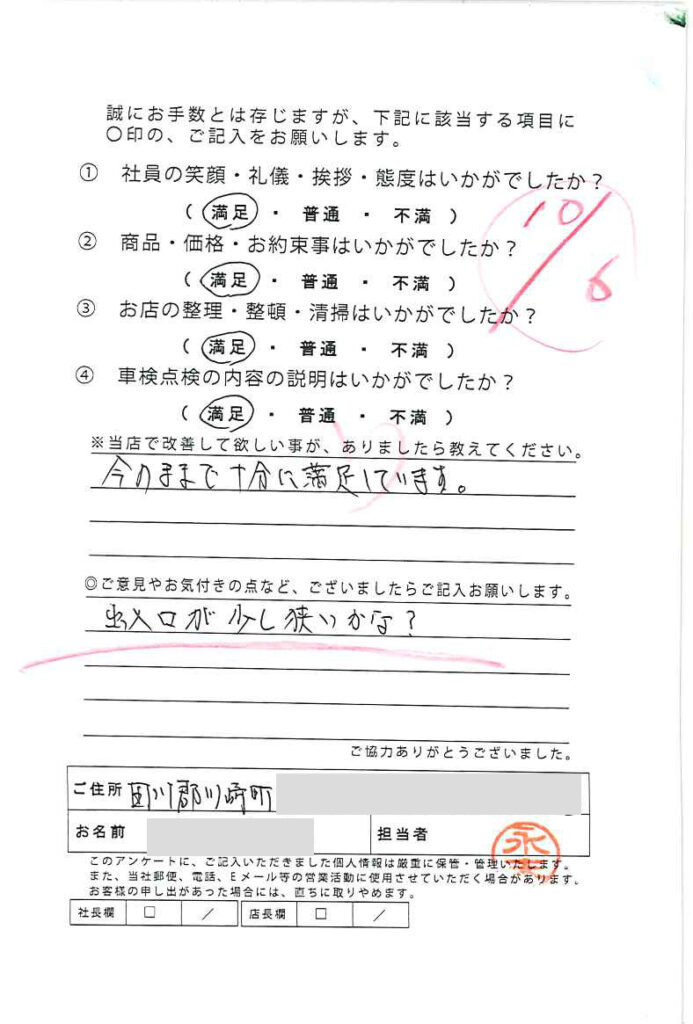 誠にお手数とは存じますが、下記に該当する項目に
〇印の、ご記入をお願いします。
① 社員の笑顔・礼儀・挨拶・態度はいかがでしたか？
( 満足 ・ 普通 ・ 不満 )
② 商品・価格・お約束事はいかがでしたか？
( 満足 ・ 普通 ・ 不満 )
10/6
③ お店の整理・整頓・清掃はいかがでしたか？
( 満足 ・ 普通 ・ 不満 )
④ 車検点検の内容の説明はいかがでしたか？
( 満足 ・ 普通 ・ 不満 )
※当店で改善して欲しい事が、ありましたら教えてください。
今のままで十分に満足しています。
◎ご意見やお気付きの点など、ございましたらご記入お願いします。
出入口が少し狭いかな？
ご協力ありがとうございました。
ご住所 田川郡川崎町
お名前 担当者 永
このアンケートに、ご記入いただきました個人情報は厳重に保管・管理いたします。
また、当社郵便、電話、Eメール等の営業活動に使用させていただく場合があります。
お客様の申し出があった場合には、直ちに取りやめます。
社長欄 □ / 店長欄 □ /